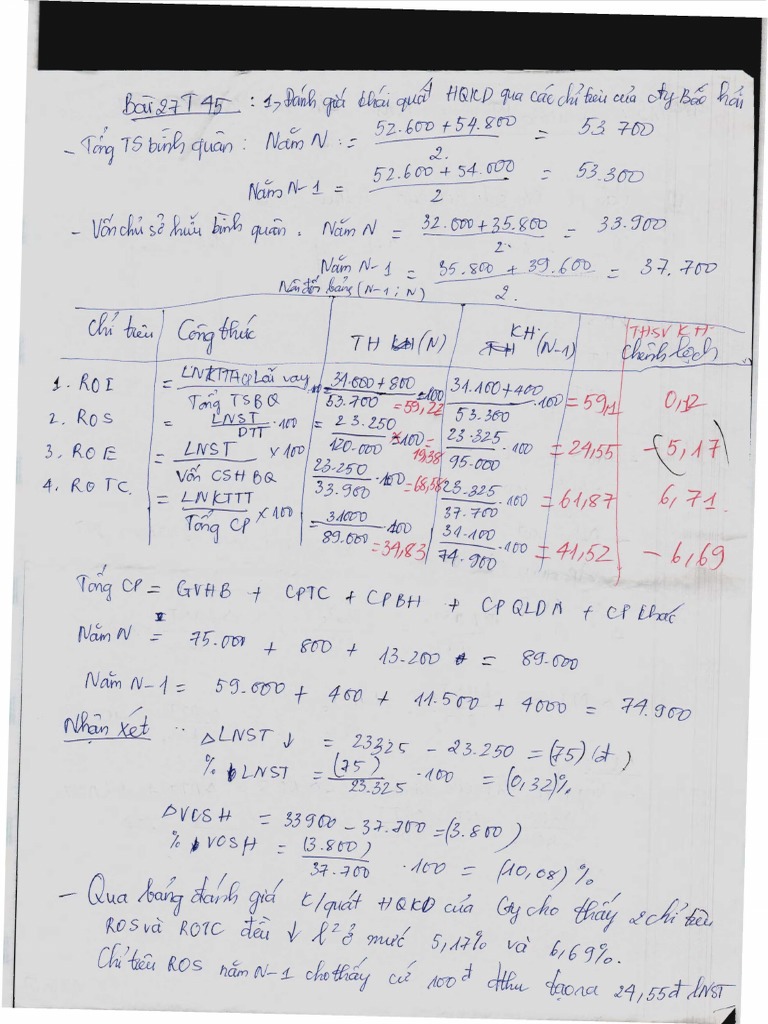 Bài 27 T 45 : 1, Đánh giá khái quát HQKD qua các chỉ tiêu của cty Bảo hải
- Tổng TS bình quân : Năm N := (52.600 + 54.800) / 2 = 53 700
Năm N-1 = (52.600 + 54.000) / 2 = 53.300
- Vốn chủ sở hữu bình quân. Năm N = (32.000 + 35.800) / 2 = 33.900
Năm N-1 = (35.800 + 39.600) / 2. = 37.700
Nên đổi bảng (N-1 ; N)
chỉ tiêu | Công thức | TH (N) | KH (N-1) | THSV KH chênh lệch
1. ROI = LNKTT + CP Lãi vay / Tổng TSBQ | 31.000 + 800 / 53.700 .100 = 59,22 | 31.100 + 400 / 53.300 .100 = 59,1 | 0,12
2. ROS = LNST / DTT .100 | = 23.250 / 120.000 × 100 = 19,38 | 23.325 / 95.000 .100 = 24,55 | - (5,17)
3. ROE = LNST / Vốn CSH BQ × 100 | 23.250 / 33.900 .100 = 68,58 | 23.325 / 37.700 .100 = 61,87 | 6,71
4. ROTC. = LNKTTT / Tổng CP × 100 | = 31000 / 89.000 .100 = 34,83 | 31.100 / 74.900 .100 = 41,52 | - 6,69
Tổng CP = GVHB + CPTC + CPBH + CPQLDN + CP khác
Năm N = 75.000 + 800 + 13.200 = 89.000
Năm N-1 = 59.000 + 400 + 11.500 + 4000 = 74.900
Nhận xét : Δ LNST ↓ = 23325 - 23.250 = (75) (đ)
% LNST = (75) / 23.325 .100 = (0,32)%
ΔVCSH = 33900 - 37.700 = (3.800)
% VCSH = (3.800) / 37.700 .100 = (10,08) %
- Qua bảng đánh giá k/quát HQKD của Cty cho thấy 2 chỉ tiêu
ROS và ROTC đều ↓ l² ở mức 5,17% và 6,69%.
Chỉ tiêu ROS năm N-1 cho thấy cứ 100đ dthu tạo ra 24,55đ LNST